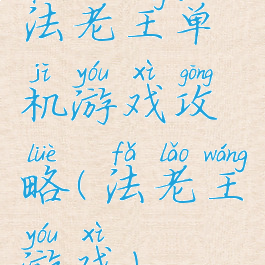 法老王单
jī yóu xì gōng
机游戏攻
lüè fǎ lǎo wáng
略(法老王
yóu xì
游戏)